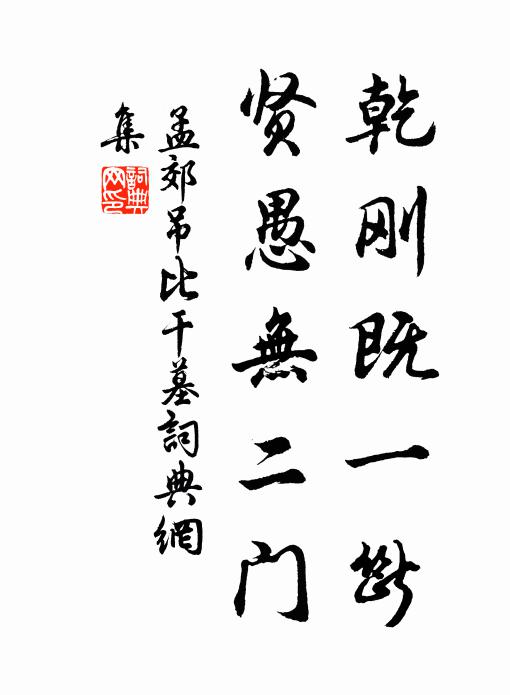 乾刚既一断
贤愚無二门
孟郊吊比干墓詞典網
集
詞典
网印